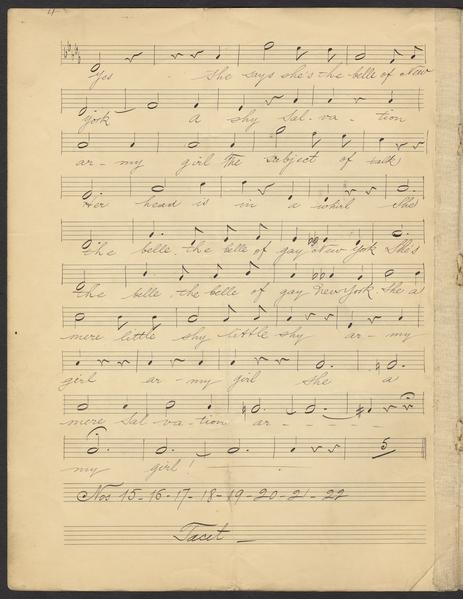 Yes She says she's the belle of New
York a shy Sal-va-tion
ar-my girl The subject of talk
Her head is in a whirl She
the belle, the belle of gay New York She's
the belle, the belle of gay New York She a
mere little shy little shy ar-my
girl ar-my girl She a
mere Sal-va-tion ar- - - - -
my girl! -
5
Nos 15-16-17-18-19-20-21-22
Tacet -